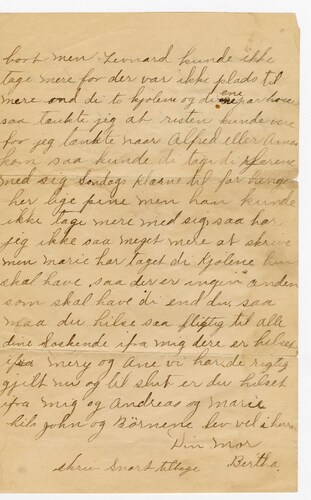 bort men Leonard kunde ikke
tage mere for der var ikke plads til
mere ond di to kjolene og di ene par
saa tankte jig at resten kunde vere
for jeg tankte naar Alfred eller
kom saa kunde di tage di
med sig Sondags klarne til far
her lige pine men han kunde
ikke tage mere med sig saa har
jig ikke saa meget mere at skrive
men marie har taget di kjolene hun
skal have, saa der er ingin anden
som skal have di end du, saa
maa du hilse saa fligtig til alle
dine Soskende ifra mig dere er hilset
ifra Mery og Ane vi har, de rigtig
gjilt nu og til slut er du hilset
ifra mig og Andreas og Marie
hils John og Börnene lev vel
Din Mor
skriv Snart tilbage Bertha